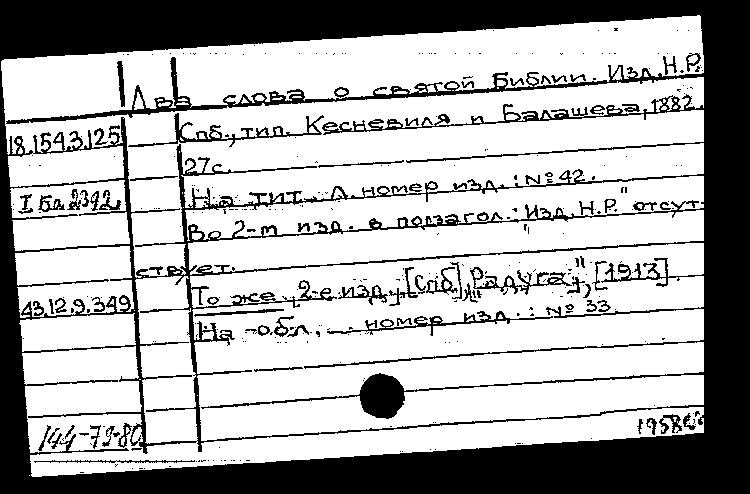 Два слова о святой Библии. Изд. Н.Р.
18.154.3.125 Спб., тип. Кесневиля и Балашева, 1882.
27с.
I Ба 2392. На тит. л. номер изд.: № 42.
Во 2-м изд. в подзагол.: "Изд. Н.Р." отсут-
ствует.
43.12.9.349. То же, 2-е изд., [Спб], "Радуга", [1913]
На обл. номер изд.: № 33.
144-79-80